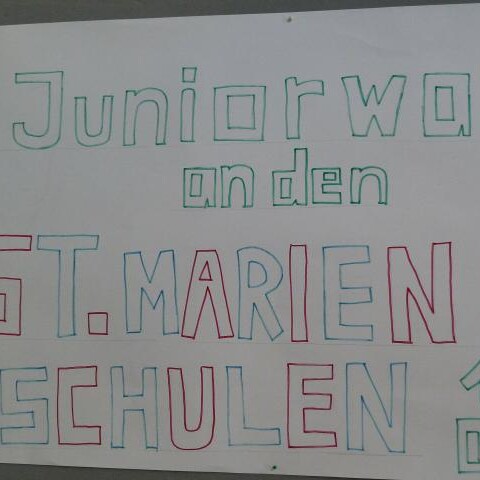 Juniorwa
an den
ST. MARIEN
SCHULEN